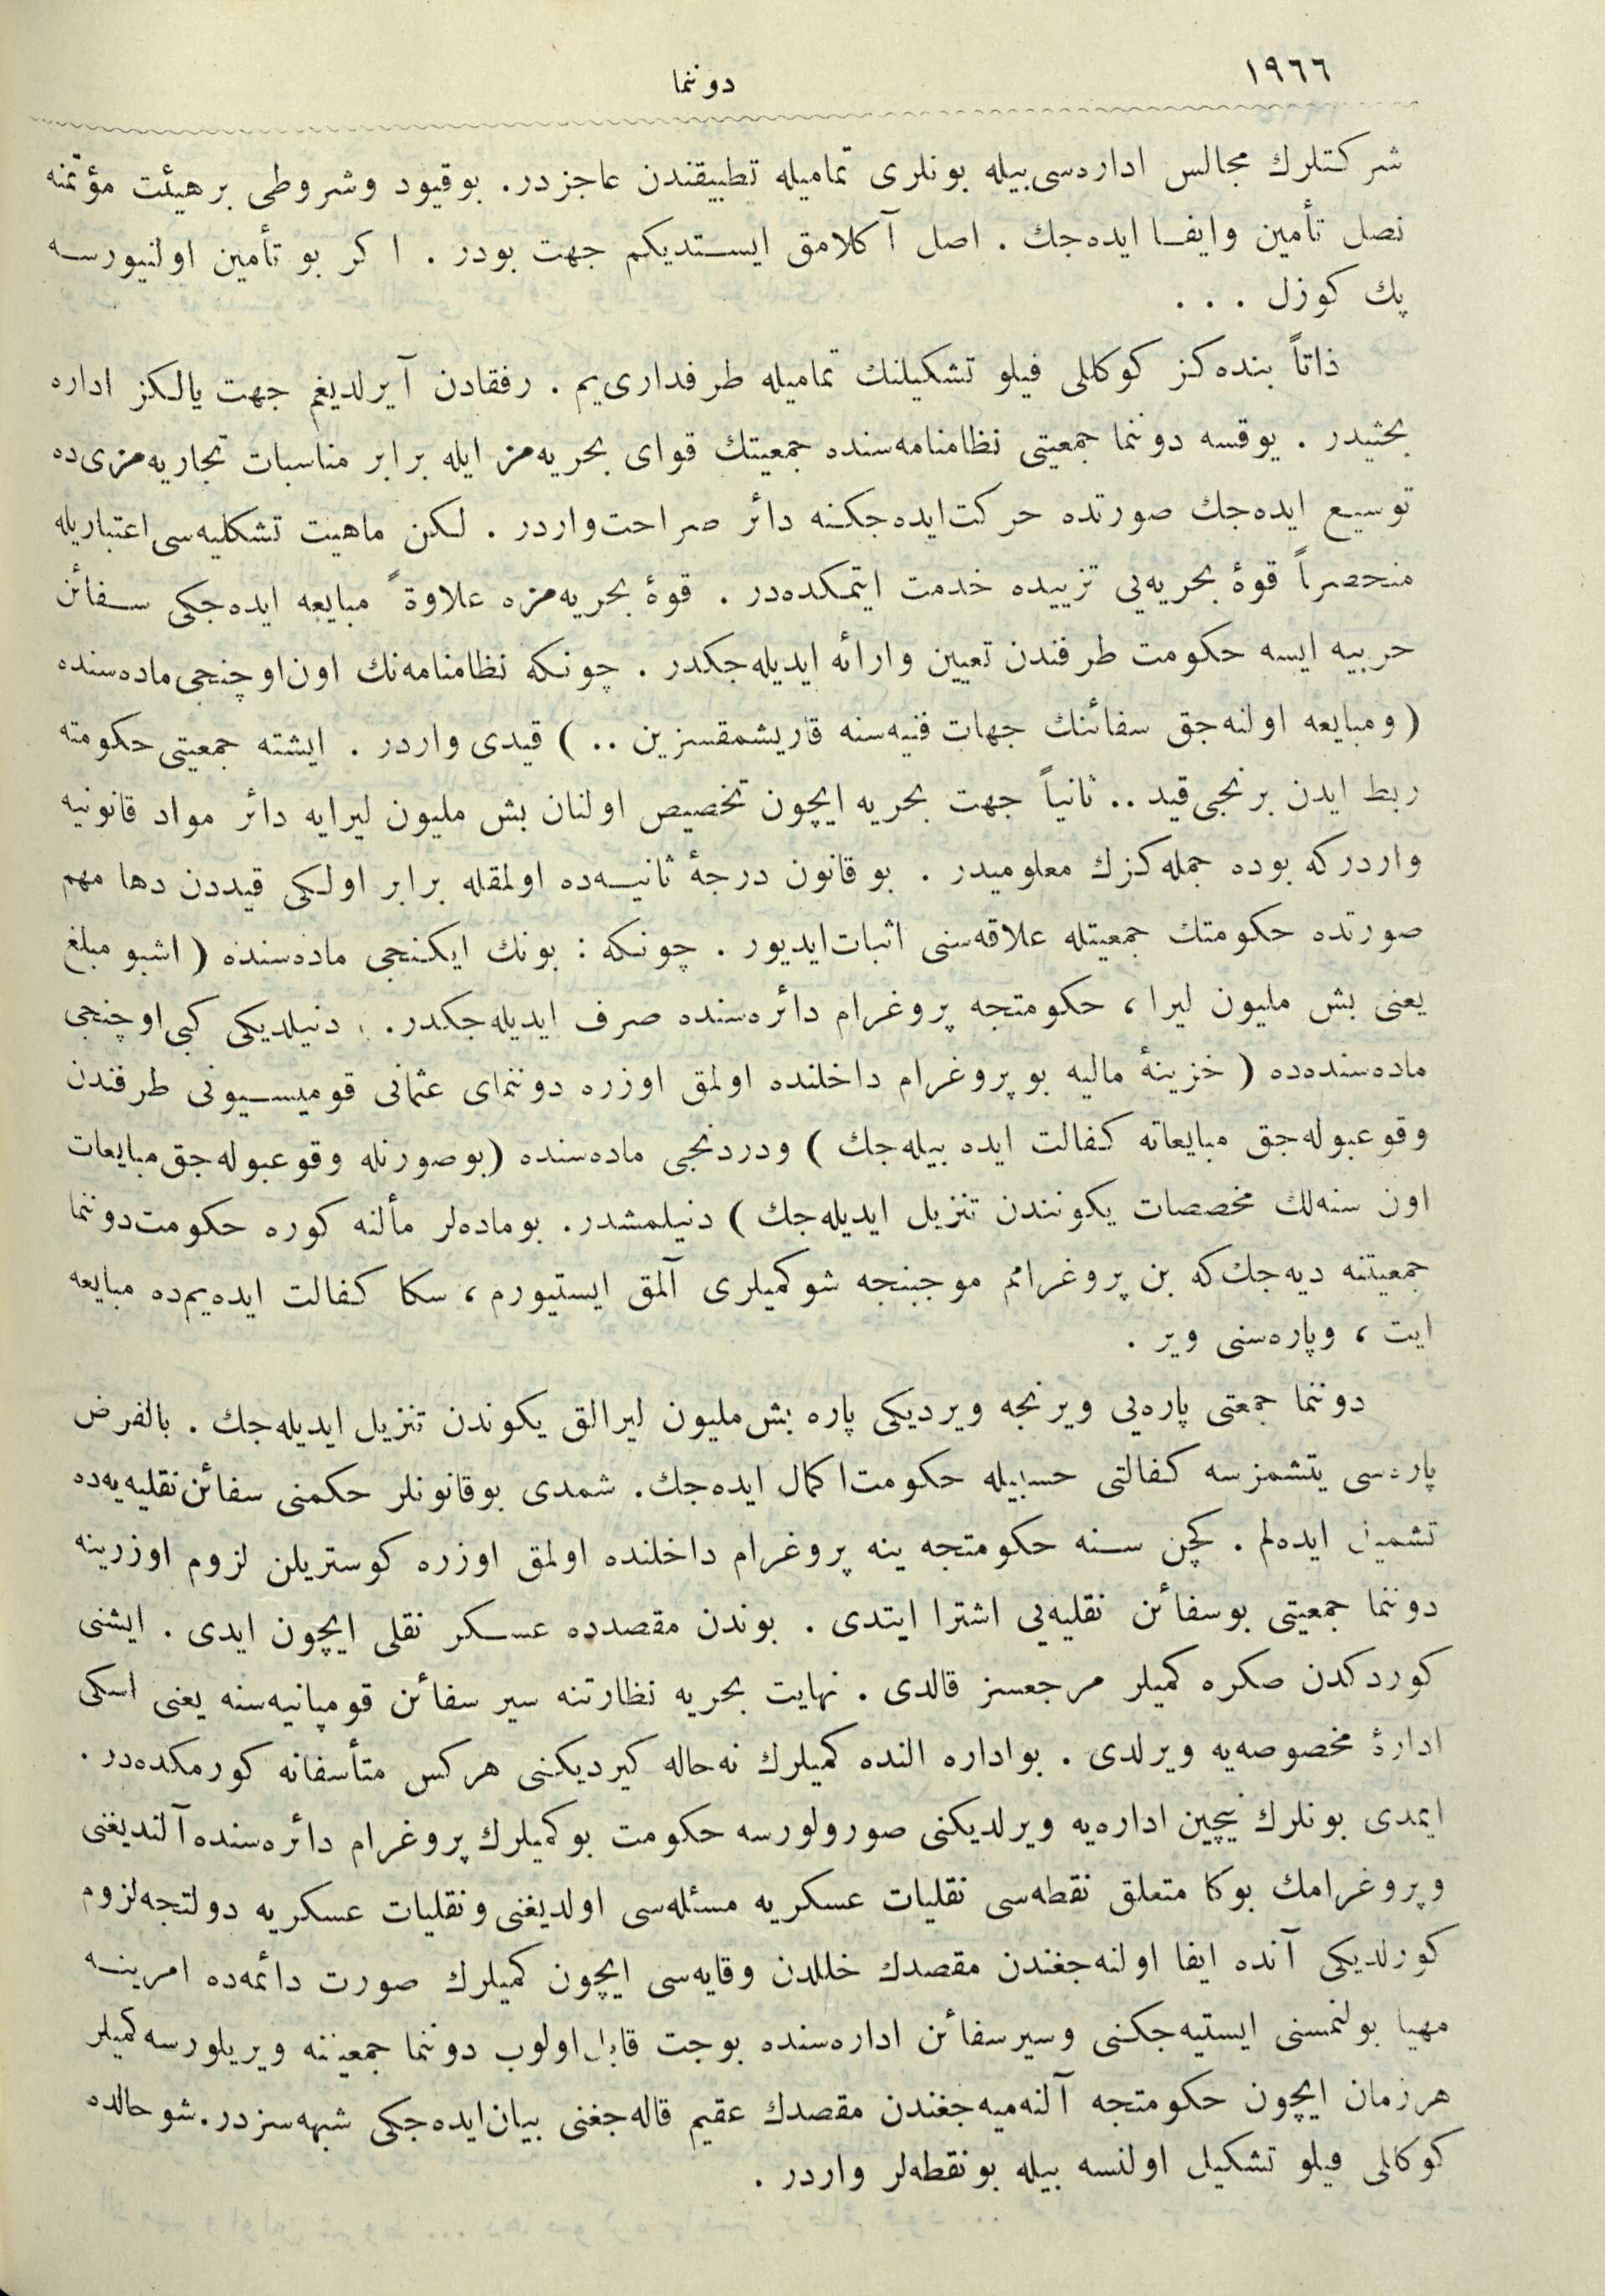 ١٩٦٦
دوننما
شركتلرك مجالس اداره‌سی بیله بونلری تمامیله تطبیقندن عاجزدر. بوقیود وشروطی برهیئت مؤتمنه
نصل تأمین وایفا ایده‌جك . اصل آكلامق ایستدیكم جهت بودر . اكر بو تأمین اولنیورسه
پك كوزل . . .
ذاتاً بنده‌كز كوكللی فیلو تشكیلنك تمامیله طرفداری‌یم . رفقادن آیرلدیغم جهت یالكز اداره
بحثیدر . یوقسه دوننما جمعیتی نظامنامه‌سنده جمعیتك قوای بحریه‌مز ایله برابر مناسبات تجاریه‌مزی‌ده
توسیع ایده‌جك صورتده حركت‌ایده‌جكنه دائر صراحت‌واردر . لكن ماهیت تشكلیه‌سی اعتباریله
منحصراً قوهٔ بحریه‌یی تزییده خدمت ایتمكده‌در . قوهٔ بحریه‌مزه علاوةً مبایعه ایده‌جكی سفائن
حربیه ایسه حكومت طرفندن تعیین وارائه ایدیله‌جكدر . چونكه نظامنامه‌نك اون‌اوچنجی ماده‌سنده
( ومبایعه اولنه‌جق سفائنك جهات فنیه‌سنه قاریشمقسزین .. ) قیدی واردر . ایشته جمعیتی حكومته
ربط ایدن برنجی قید .. ثانیاً جهت بحریه ایچون تخصیص اولنان بش ملیون لیرایه دائر مواد قانونیه
واردركه بوده جمله‌كزك معلومیدر . بو قانون درجهٔ ثانیه‌ده اولمقله برابر اولكی قیددن دها مهم
صورتده حكومتك جمعیتله علاقه‌سنی اثبات‌ایدیور . چونكه : بونك ایكنجی ماده‌سنده ( اشبو مبلغ
یعنی بش ملیون لیرا ، حكومتجه پروغرام دائره‌سنده صرف ایدیله‌جكدر. دنیلدیكی كبی اوچنجی
ماده‌سنده‌ده ( خزینهٔ مالیه بو پروغرام داخلنده اولمق اوزره دوننمای عثمانی قومیسیونی طرفندن
وقوعبوله‌جق مبایعاته كفالت ایده بیله‌جك ) ودردنجی ماده‌سنده (بوصورتله وقوعبوله‌جق مبایعات
اون سنه‌لك مخصصات یكونندن تنزیل ایدیله‌جك ) دنیلمشدر. بوماده‌لر مألنه كوره حكومت‌دوننما
جمعیتنه دیه‌جك‌كه بن پروغرامم موجبنجه شوكمیلری آلمق ایستیورم ، سكا كفالت ایده‌یم‌ده مبایعه
ایت ، وپاره‌سنی ویر .
دوننما جمعتی پاره‌یی ویرنجه ویردیكی پاره بش‌ملیون لیرالق یكوندن تنزیل ایدیله‌جك . بالفرض
پاره‌سی یتشمزسه كفالتی حسبیله حكومت‌اكمال ایده‌جك. شمدی بوقانونلر حكمنی سفائن‌نقلیه‌یه‌ده
تشمیل ایده‌لم . كچن سنه حكومتجه ینه پروغرام داخلنده اولمق اوزره كوستریلن لزوم اوزرینه
دوننما جمعیتی بوسفائن نقلیه‌یی اشترا ایتدی . بوندن مقصدده عسكر نقلی ایچون ایدی . ایشنی
كوردكدن صكره كمیلر مرجعسز قالدی . نهایت بحریه نظارتنه سیر سفائن قومپانیه‌سنه یعنی اسكی
ادارهٔ مخصوصه‌یه ویرلدی . بواداره النده كمیلرك نه‌حاله كیردیكنی هركس متأسفانه كورمكده‌در .
ایمدی بونلرك نیچین اداره‌یه ویرلدیكنی صورولورسه حكومت بوكمیلرك پروغرام دائره‌سنده‌آلندیغنی
وپروغرامك بوكا متعلق نقطه‌سی نقلیات عسكریه مسئله‌سی اولدیغنی ونقلیات عسكریه دولتجه‌لزوم
كورلدیكی آنده ایفا اولنه‌جغندن مقصدك خللدن وقایه‌سی ایچون كمیلرك صورت دائمه‌ده امرینه
مهیا بولنمسنی ایستیه‌جكنی وسیرسفائن اداره‌سنده بوجت قابل‌اولوب دوننما جمعیتنه ویریلورسه‌كمیلر
هرزمان ایچون حكومتجه آلنه‌میه‌جغندن مقصدك عقیم قاله‌جغنی بیان‌ایده‌جكی شبهه‌سزدر.شو حالده
كوكللی فیلو تشكیل اولنسه بیله بونقطه‌لر واردر .